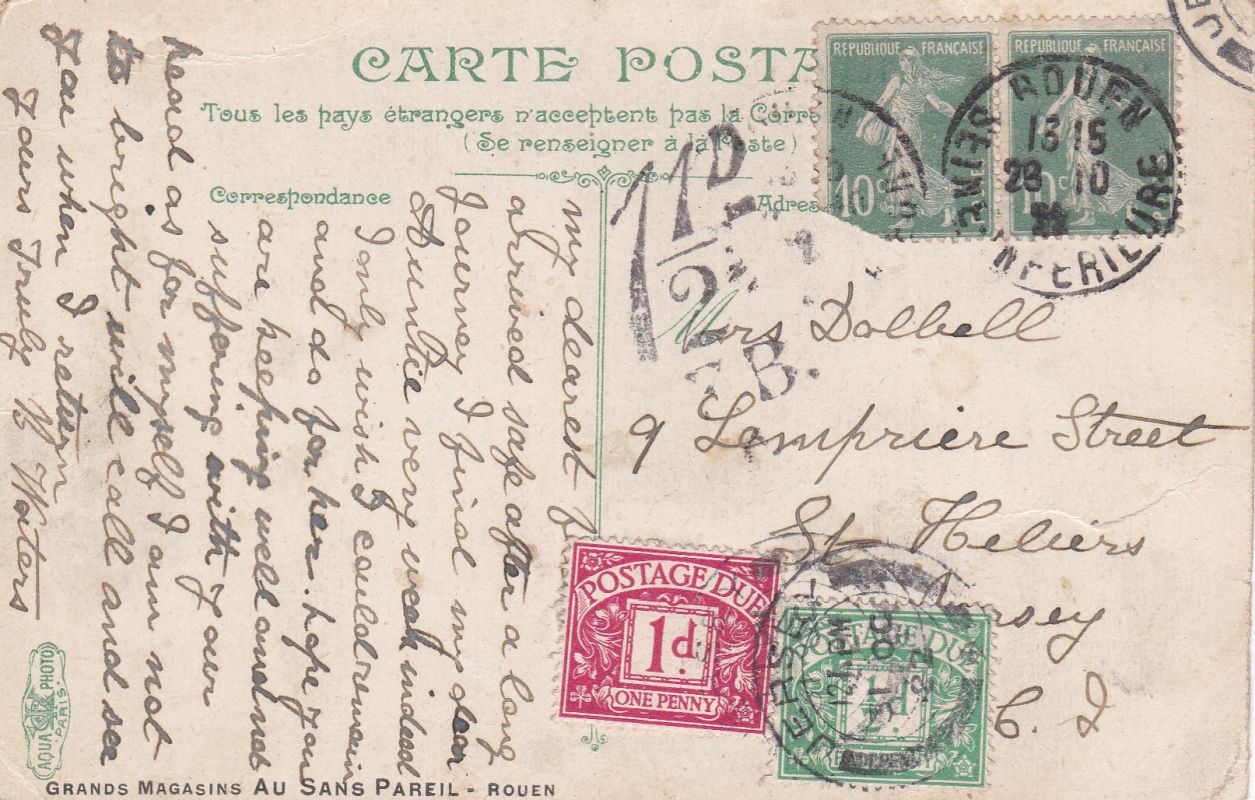 CARTE POSTA
Tous les pays étrangers n'acceptent pas la Corre
(Se renseigner à la Poste)
Correspondance
Adres
RÉPUBLIQUE FRANÇAISE
10c
RÉPUBLIQUE FRANÇAISE
10c
ROUEN
13 15
28 10
SEINE INFERIEURE
1½D
F.B.
Mrs Dolbell
9 Lempriere Street
St Heliers
Jersey
C. I
my dearest
arrived safe after a long
Journey I find my dear
Auntie very weak indeed
I only wish I could remain
and do for her. hope you
are keeping well and not
suffering with your
head as for myself I am not
to bright will call and see
you when I return
Yours Truly
Waters
POSTAGE DUE
1d.
ONE PENNY
POSTAGE DUE
½d
JERSEY
12 PM
OC
AQUA PHOTO
PARIS
GRANDS MAGASINS AU SANS PAREIL - ROUEN